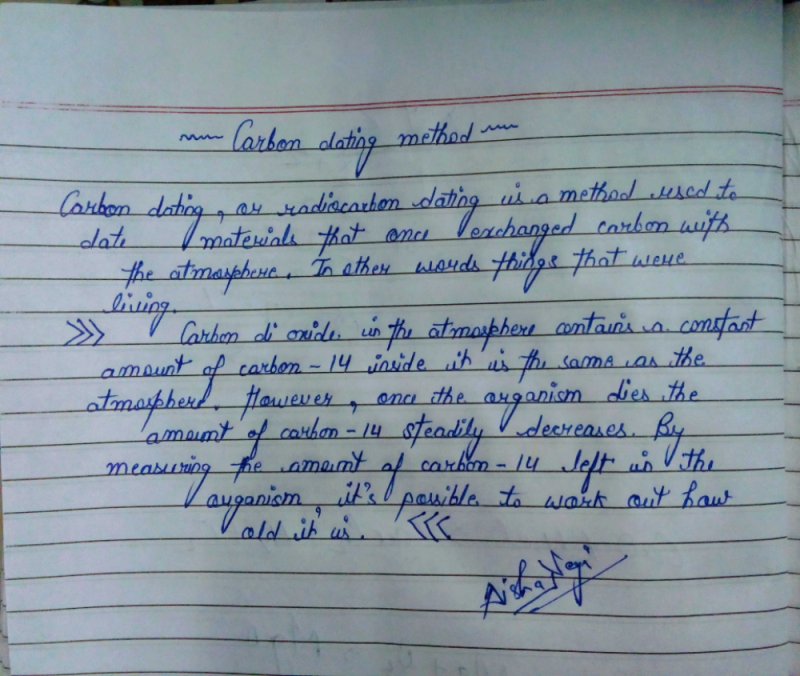 ~~ Carbon dating method ~~
Carbon dating, or radiocarbon dating is a method used to
date materials that once exchanged carbon with
the atmosphere. In other words things that were
living.
>>> Carbon di oxide in the atmosphere contains a constant
amount of carbon-14 inside it is the same as the
atmosphere. However, once the organism dies the
amount of carbon-14 steadily decreases. By
measuring the amount of carbon-14 left in the
organism, it's possible to work out how
old it is. <<<
Aisha Negi